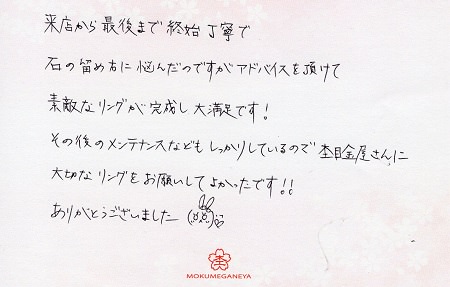 来店から最後まで終始丁寧で
石の留め方に悩んだのですがアドバイスを頂けて
素敵なリングが完成し大満足です!
その後のメンテナンスなどもしっかりしているので杢目金屋さんに
大切なリングをお願いしてよかったです!!
ありがとうございました
MOKUMEGANEYA